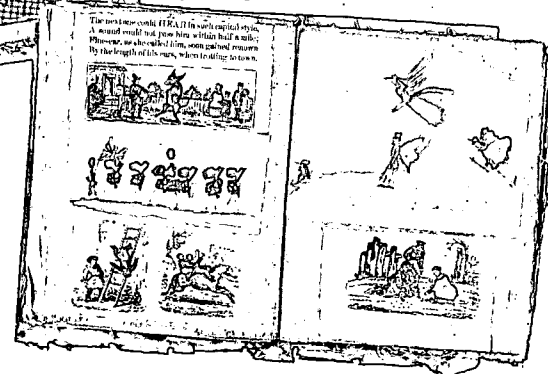 The next one could HEAR in such capital style,
A sound could not pass him within half a mile;
Fine-ear, as she called him, soon gained renown
By the length of his ears, when trotting to town.